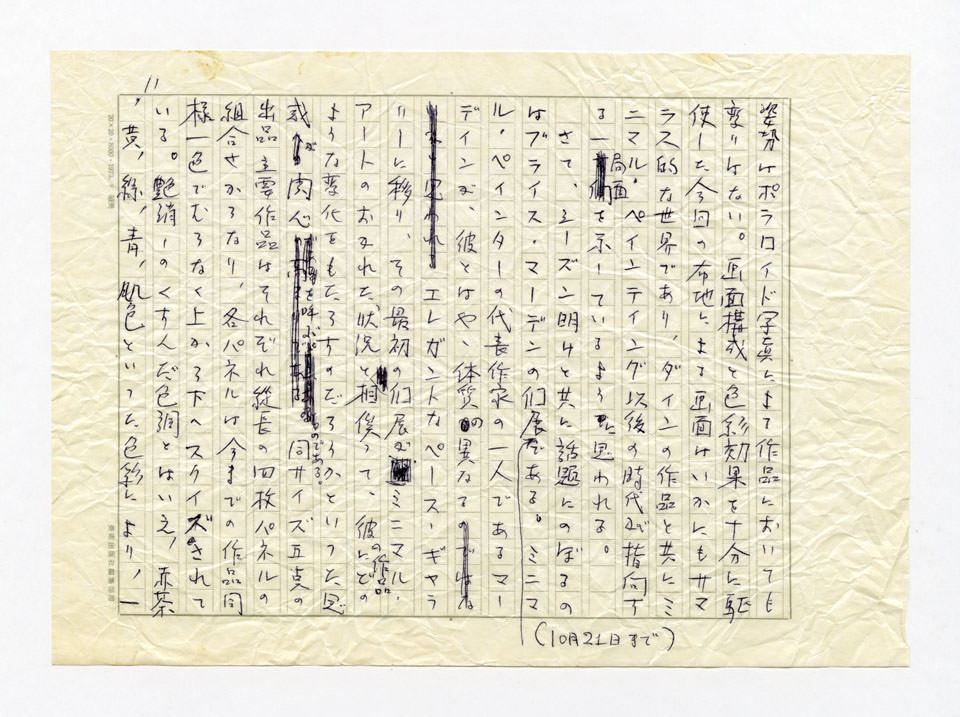 姿勢はポラロイド写真による作品においても
変りはない。画面構成と色彩効果を十分に駆
使した今回の布地による画面はいかにもサマ
ラス的な世界であり、ダインの作品と共にミ
ニマル・ペインティング以後の時代が指向す
る一局面を示しているように思われる。
さて、シーズン明けと共に話題にのぼるの
はブライス・マーデンの個展である。ミニマ
(10月21日まで)
ル・ペインターの代表作家の一人であるマー
デインが、彼とはやゝ体質の異なるの
エレガントなペース・ギャラ
リーに移り、その最初の個展が ミニマル・
アートのおかれた状況と相俟って、彼の作品にどの
ような変化をもたらすのだろうかといった思
惑が関心を呼ぶものである。同サイズ五点の
出品主要作品はそれぞれ縦長の四枚パネルの
組合せからなり、各パネルは今までの作品同
様一色でむらなく上から下へスクイズされて
いる。艶消しのくすんだ色調とはいえ、赤茶
、黄、緑、青、肌色といった色彩により、一
11
20×20